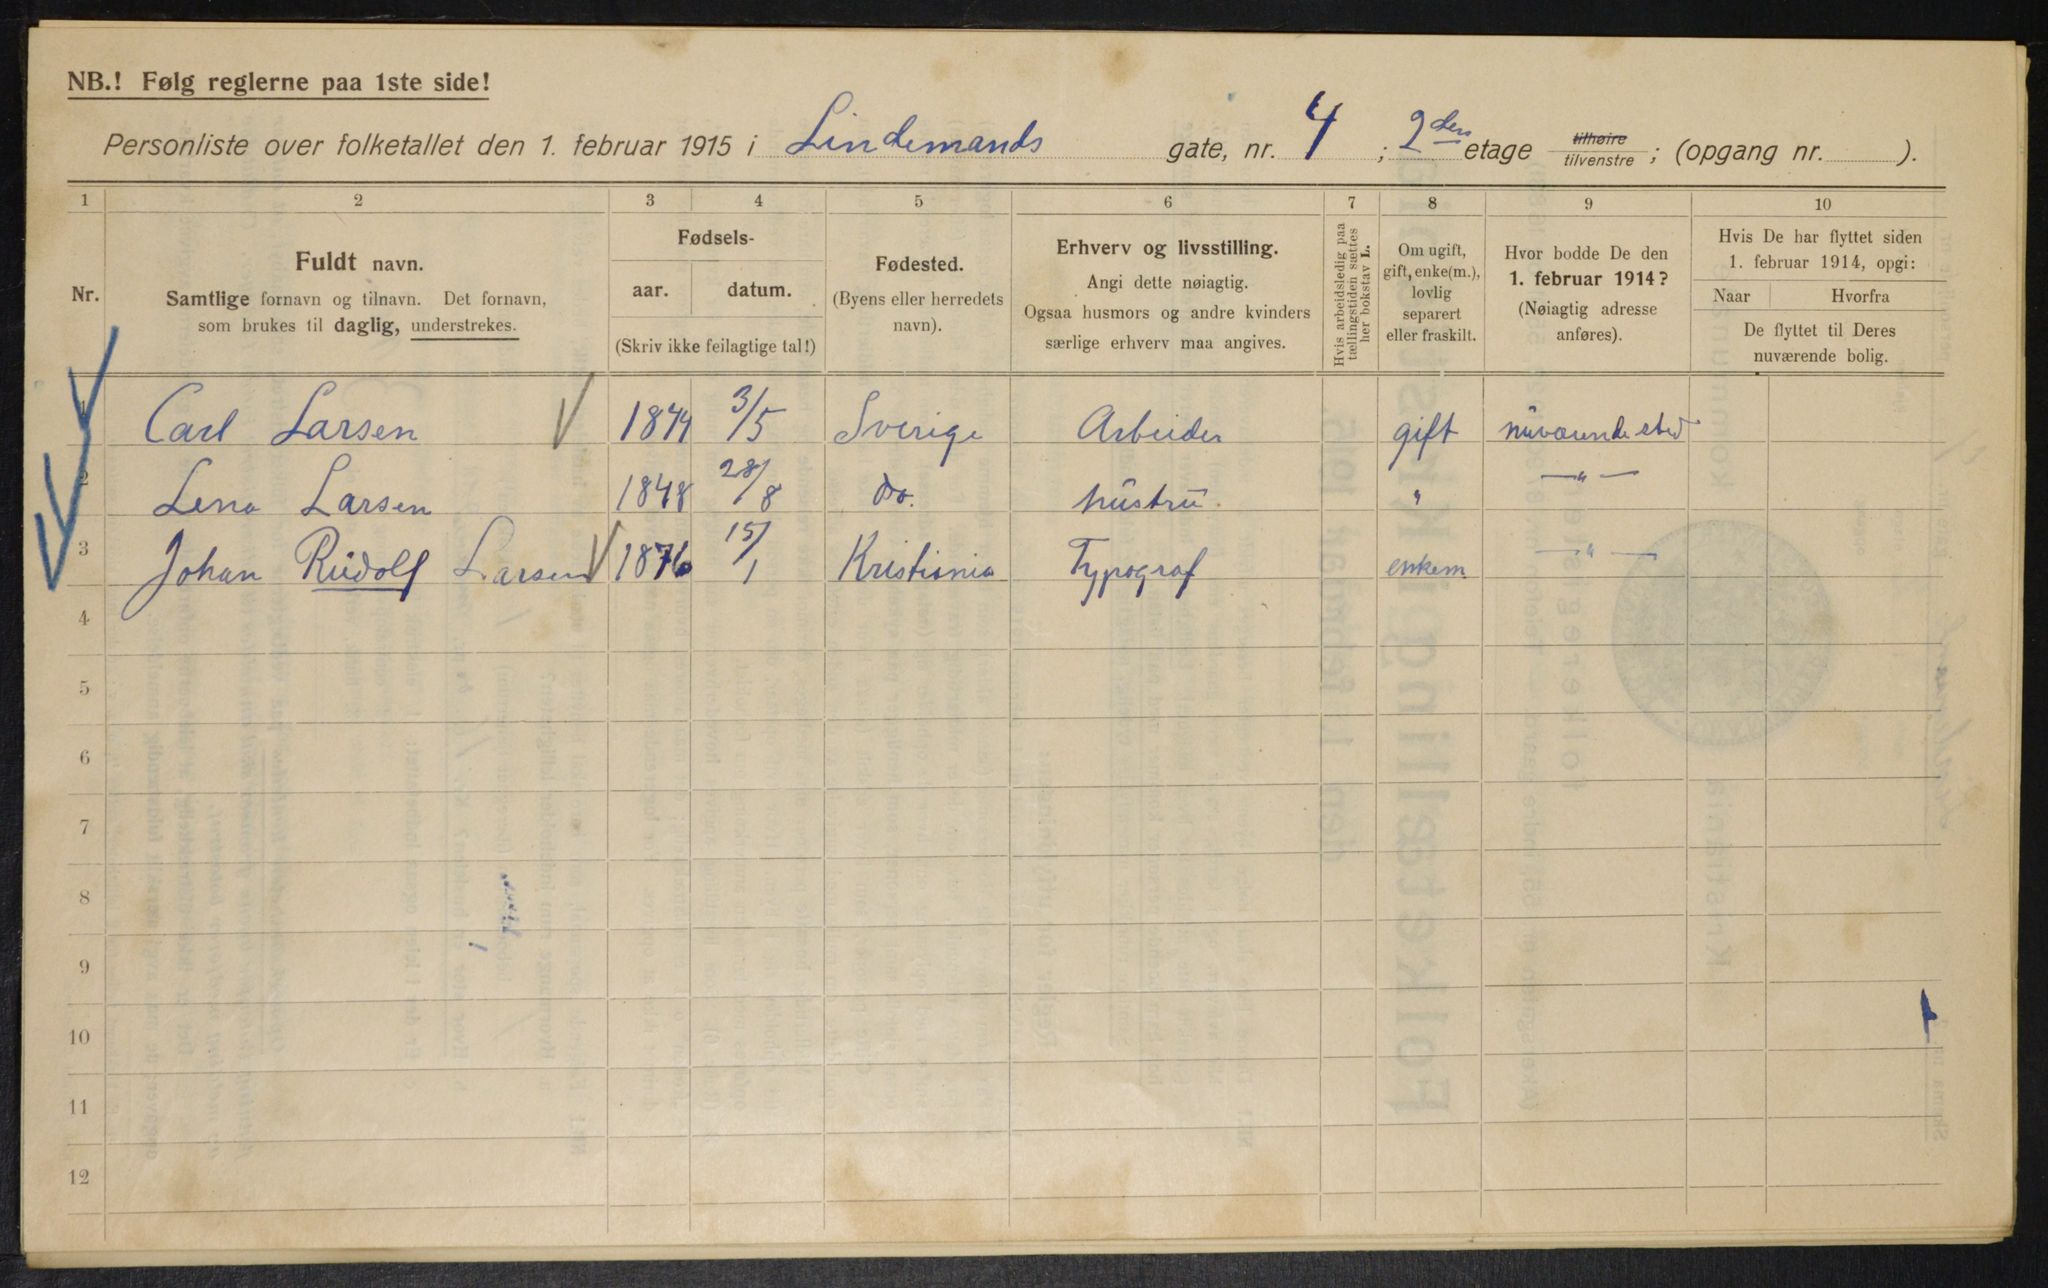 NB.! Følg reglerne paa 1ste side!
Personliste over folketallet den 1. februar 1915 i Lindemans gate, nr. 4 ; 2den etage tilhøire tilvenstre ; (opgang nr. ).
1 2 3 4 5 6 7 8 9 10
Nr.
Fuldt navn.
Samtlige fornavn og tilnavn. Det fornavn,
som brukes til daglig, understrekes.
Fødsels-
aar. datum.
(Skriv ikke feilagtige tal!)
Fødested.
(Byens eller herredets
navn).
Erhverv og livsstilling.
Angi dette nøiagtig.
Ogsaa husmors og andre kvinders
særlige erhverv maa angives.
Hvis arbeidsledig paa
tællingstiden sættes
her bokstav L.
Om ugift,
gift, enke(m.),
lovlig
separert
eller fraskilt.
Hvor bodde De den
1. februar 1914?
(Nøiagtig adresse
anføres).
Hvis De har flyttet siden
1. februar 1914, opgi:
Naar Hvorfra
De flyttet til Deres
nuværende bolig.
1 Carl Larsen 1844 3/5 Sverige Arbeider gift nuværende sted
2 Lena Larsen 1848 28/8 do. hustru. " —"—
3 Johan Rudolf Larsen 1876 15/1 Kristiania Typograf enkem —"—
4
5
6
7
8
9
10
11
12